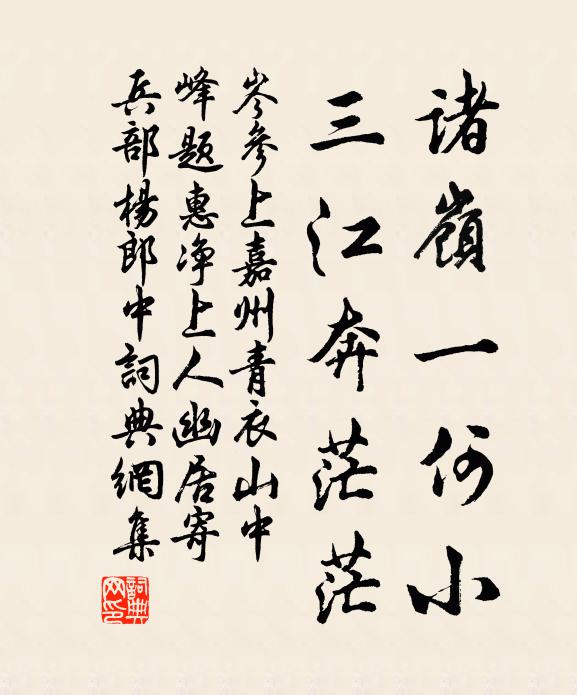 諸嶺一何小
三江奔茫茫
岑參上嘉州青衣山中
峰題惠净上人幽居寄
兵部楊郎中詞典網集
詞典網印